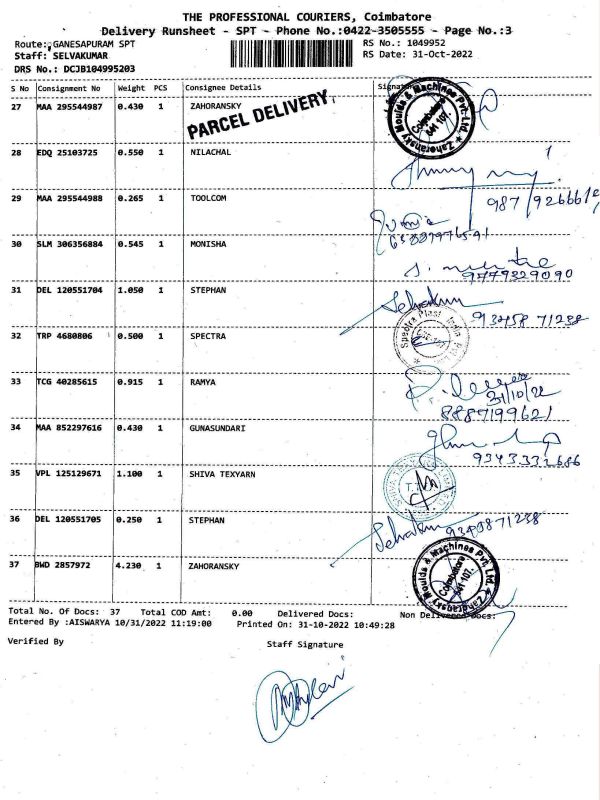 THE PROFESSIONAL COURIERS, Coimbatore
Delivery Runsheet - SPT - Phone No.:0422-3505555 - Page No.:3
Route: GANESAPURAM SPT RS No.: 1049952
Staff: SELVAKUMAR RS Date: 31-Oct-2022
DRS No.: DCJB104995203
S No Consignment No Weight PCS Consignee Details Signature
27 MAA 295544987 0.430 1 ZAHORANSKY
PARCEL DELIVERY
Zahoransky Moulds & Machines Pvt. Ltd. Coimbatore 641 107.
28 EDQ 25103725 0.550 1 NILACHAL
29 MAA 295544988 0.265 1 TOOLCOM
30 SLM 306356884 0.545 1 MONISHA
9779329090
31 DEL 120551704 1.050 1 STEPHAN
Selvakum
93458 71238
32 TRP 4680806 0.500 1 SPECTRA
Spectra Plast India
33 TCG 40285615 0.915 1 RAMYA
31/10/22
8887199621
34 MAA 852297616 0.430 1 GUNASUNDARI
35 VPL 125129671 1.100 1 SHIVA TEXYARN
36 DEL 120551705 0.250 1 STEPHAN
Selvakum
37 BWD 2857972 4.230 1 ZAHORANSKY
Zahoransky Moulds & Machines Pvt. Ltd. Coimbatore 641 107.
Total No. Of Docs: 37 Total COD Amt: 0.00 Delivered Docs: Non Delivered Docs:
Entered By :AISWARYA 10/31/2022 11:19:00 Printed On: 31-10-2022 10:49:28
Verified By Staff Signature